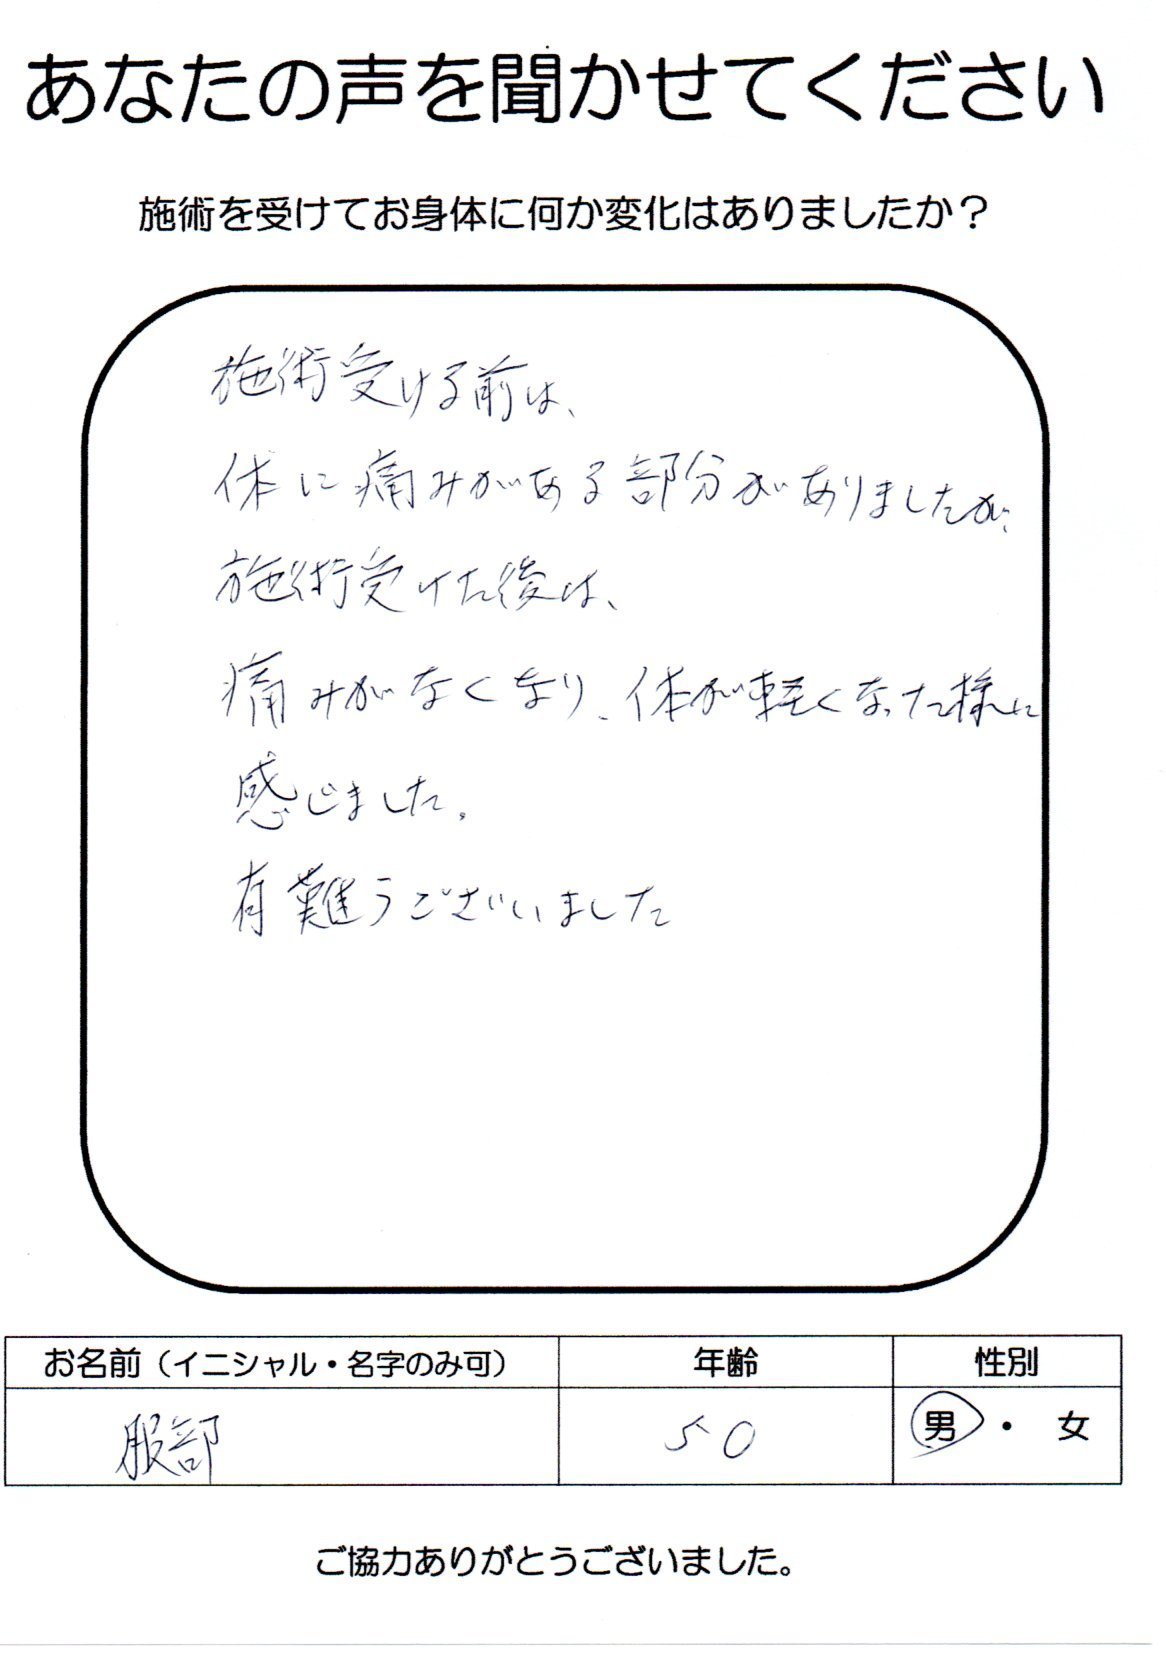 あなたの声を聞かせてください
施術を受けてお身体に何か変化はありましたか？
施術受ける前は、
体に痛みがある部分がありましたが、
施術受けた後は、
痛みがなくなり、体が軽くなった様に
感じました。
有難うございました
お名前（イニシャル・名字のみ可） 年齢 性別
服部 50 男・女
ご協力ありがとうございました。